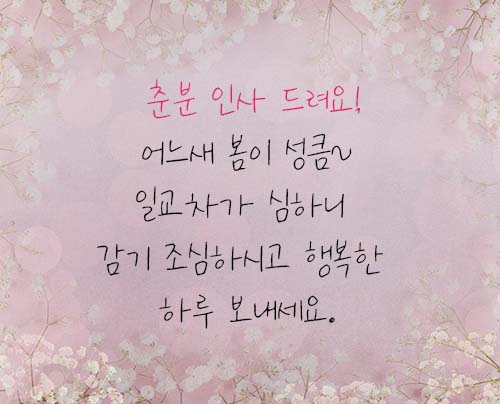 춘분 인사 드려요!
어느새 봄이 성큼~
일교차가 심하니
감기 조심하시고 행복한
하루 보내세요.